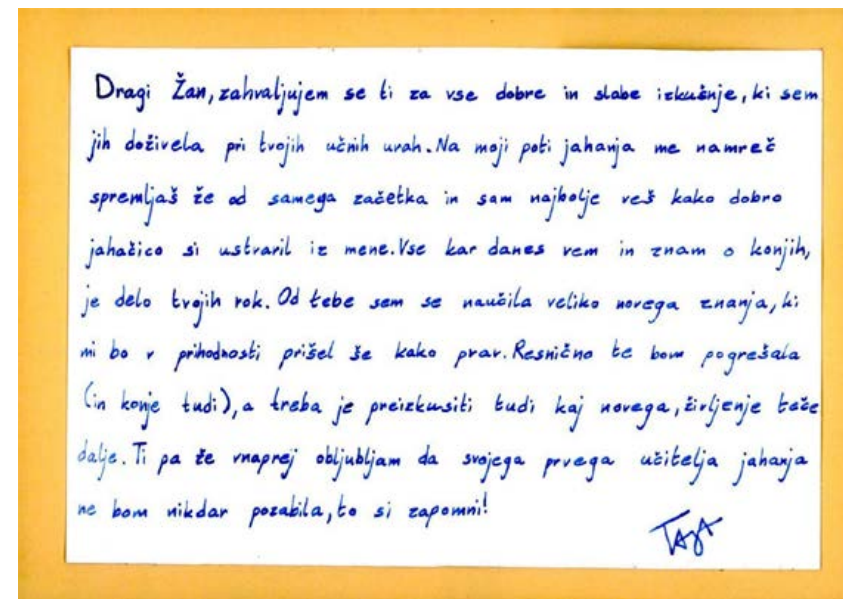 Dragi Žan, zahvaljujem se ti za vse dobre in slabe izkušnje, ki sem
jih doživela pri tvojih učnih urah. Na moji poti jahanja me namreč
spremljaš že od samega začetka in sam najbolje veš kako dobro
jahačico si ustvaril iz mene. Vse kar danes vem in znam o konjih,
je delo tvojih rok. Od tebe sem se naučila veliko novega znanja, ki
mi bo v prihodnosti prišel še kako prav. Resnično te bom pogrešala
(in konje tudi), a treba je preizkusiti tudi kaj novega, življenje teče
dalje. Ti pa že vnaprej obljubljam da svojega prvega učitelja jahanja
ne bom nikdar pozabila, to si zapomni!
TAJA